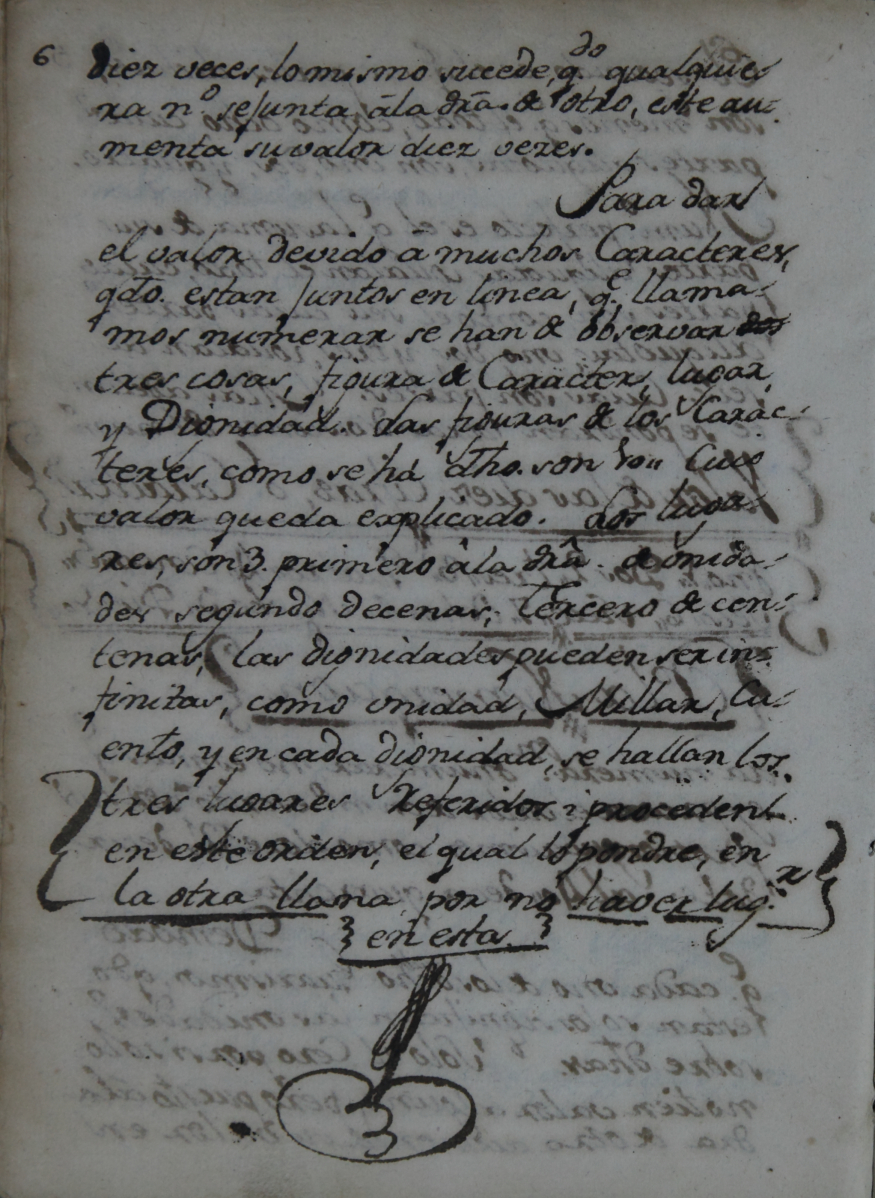 6
diez veces, lo mismo sucede, q.do qualquie-
ra n.o se junta â la dra. de otro, este au-
menta su valor diez vezes.
Para dar
el valor devido â muchos Caracteres,
qdo. estan juntos en linea, q.e llama-
mos numerar se han de observar
tres cosas, figura de Caracter, lugar,
y Dignidad. Las figuras de los Carac-
teres, como se há dho. son 10,, Cuio
valor queda explicado. Los luga-
res, son 3. primero â la drâ. de unida-
des segundo decenas, Tercero de cen-
tenas, las dignidades pueden ser in-
finitas, como unidad, Millar, Cu-
ento, y en cada dignidad, se hallan los
tres lugares Referidos i proceden
en este orden, el qual lo pondre, en
la otra llama por no haver lug.r
en esta.